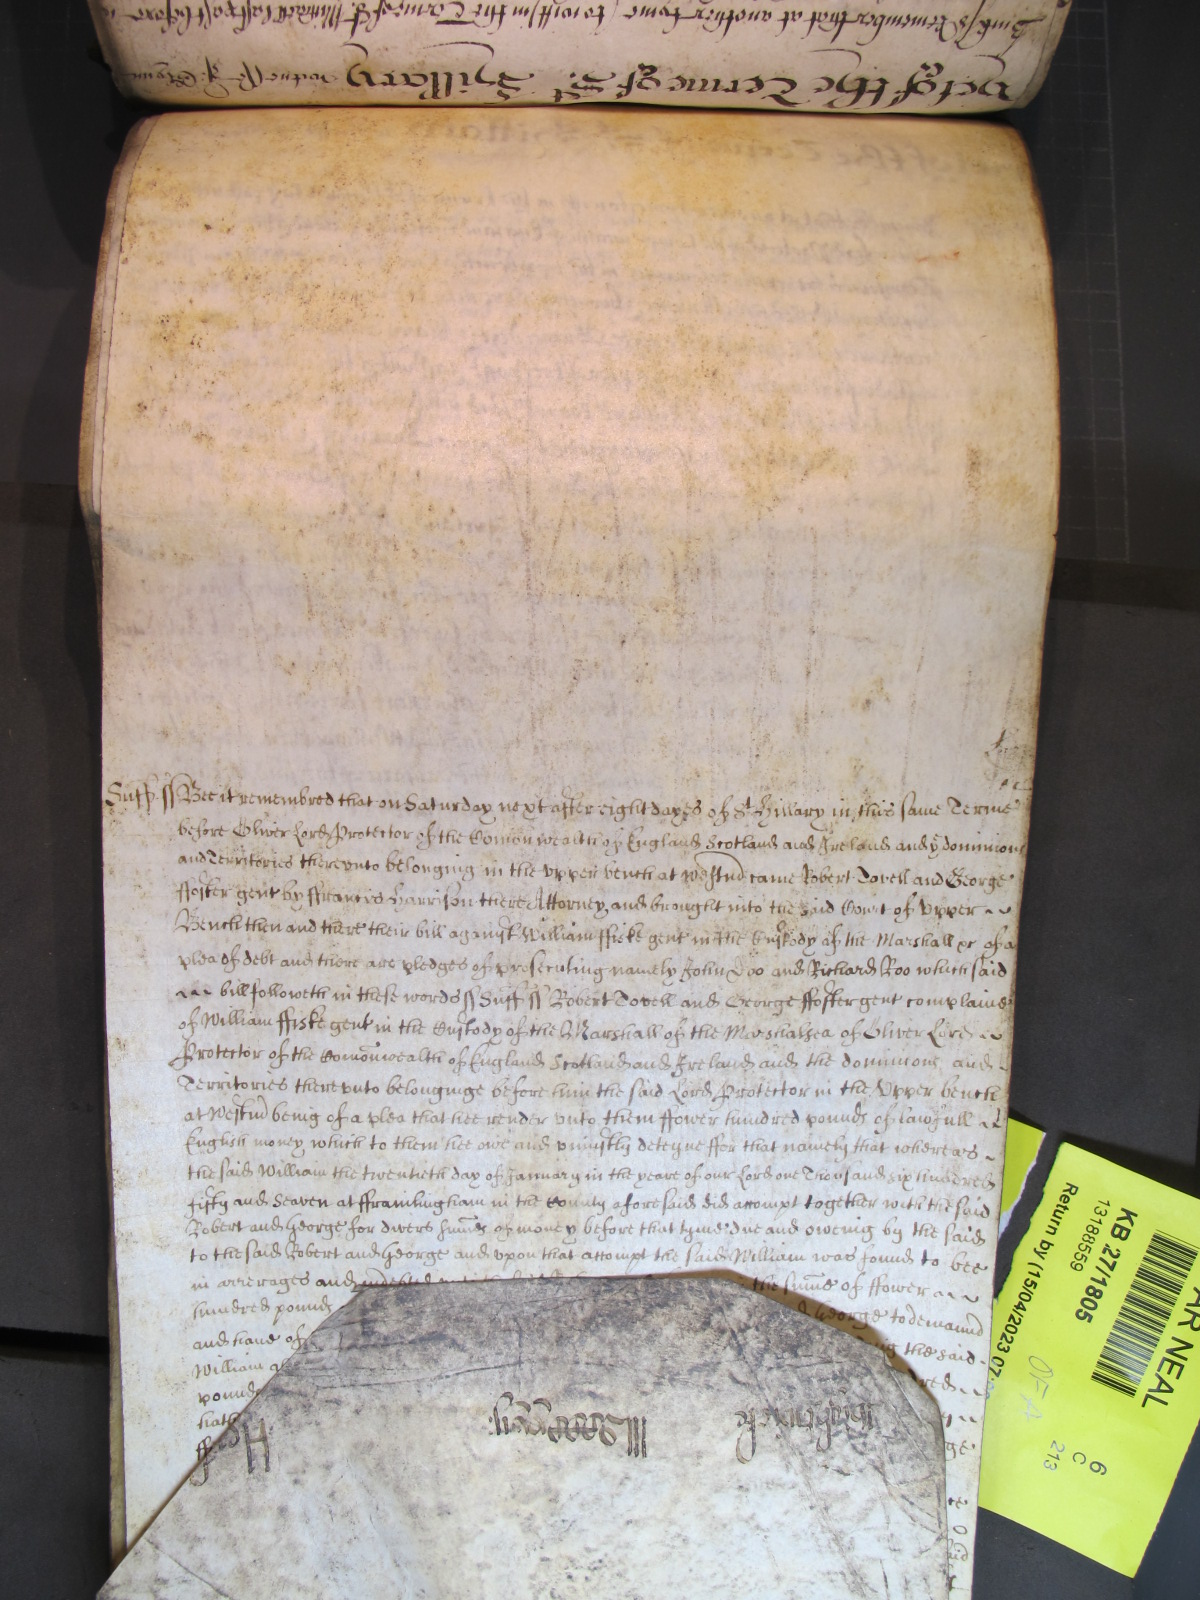 yet of the Terme of St Hillary
Suff ss Remember that at another tyme, to witt in the Terme of St Michaell last past before
Suff. ss Bee it remembred that on Saturday next after eight dayes of St Hillary in this same Terme
before Oliver Lord Protector of the Comonwealth of England Scotland and Ireland and ye dominions
and Territories therevnto belonging in the vpper bench at Westmr came Robert Tovell and George
ffoster gent by ffrancis Harrison there Attorney, and brought into the said Court of Vpper
Bench then and there their bill against William ffiske gent in the Custody of the Marshall &c of a
plea of debt and there are pledges of prosecuting namely John Doo and Richard Roo which said
bill followeth in these words ss Suff ss Robert Tovell and George ffoster gent complaine
of William ffiske gent in the Custody of the Marshall of the Marshalsea of Oliver Lord
Protector of the Comonwealth of England Scotland and Ireland and the dominions and
Territories therevnto belonginge before him the said Lord Protector in the Vpper bench
at Westmr being of a plea that hee render vnto them ffower hundred pounds of lawfull
English money which to them hee owe and vniustly deteyne ffor that namely that whereas
the said William the twentieth day of January in the yeare of our Lord one Thousand six hundred
fifty and Seaven at fframlingham in the County aforesaid did accompt together with the said
Robert and George for divers summes of money before that tyme due and oweing by the said
to the said Robert and George and vpon that accompt the said William was found to bee
in arrerages and indebted the summe of ffower
hundred pounds George to demaund
and haue of the said
William
pounds
hath
KB 27/1805
13188559
Return by (15/04/2023 07:
AR NEAL
6
C
213